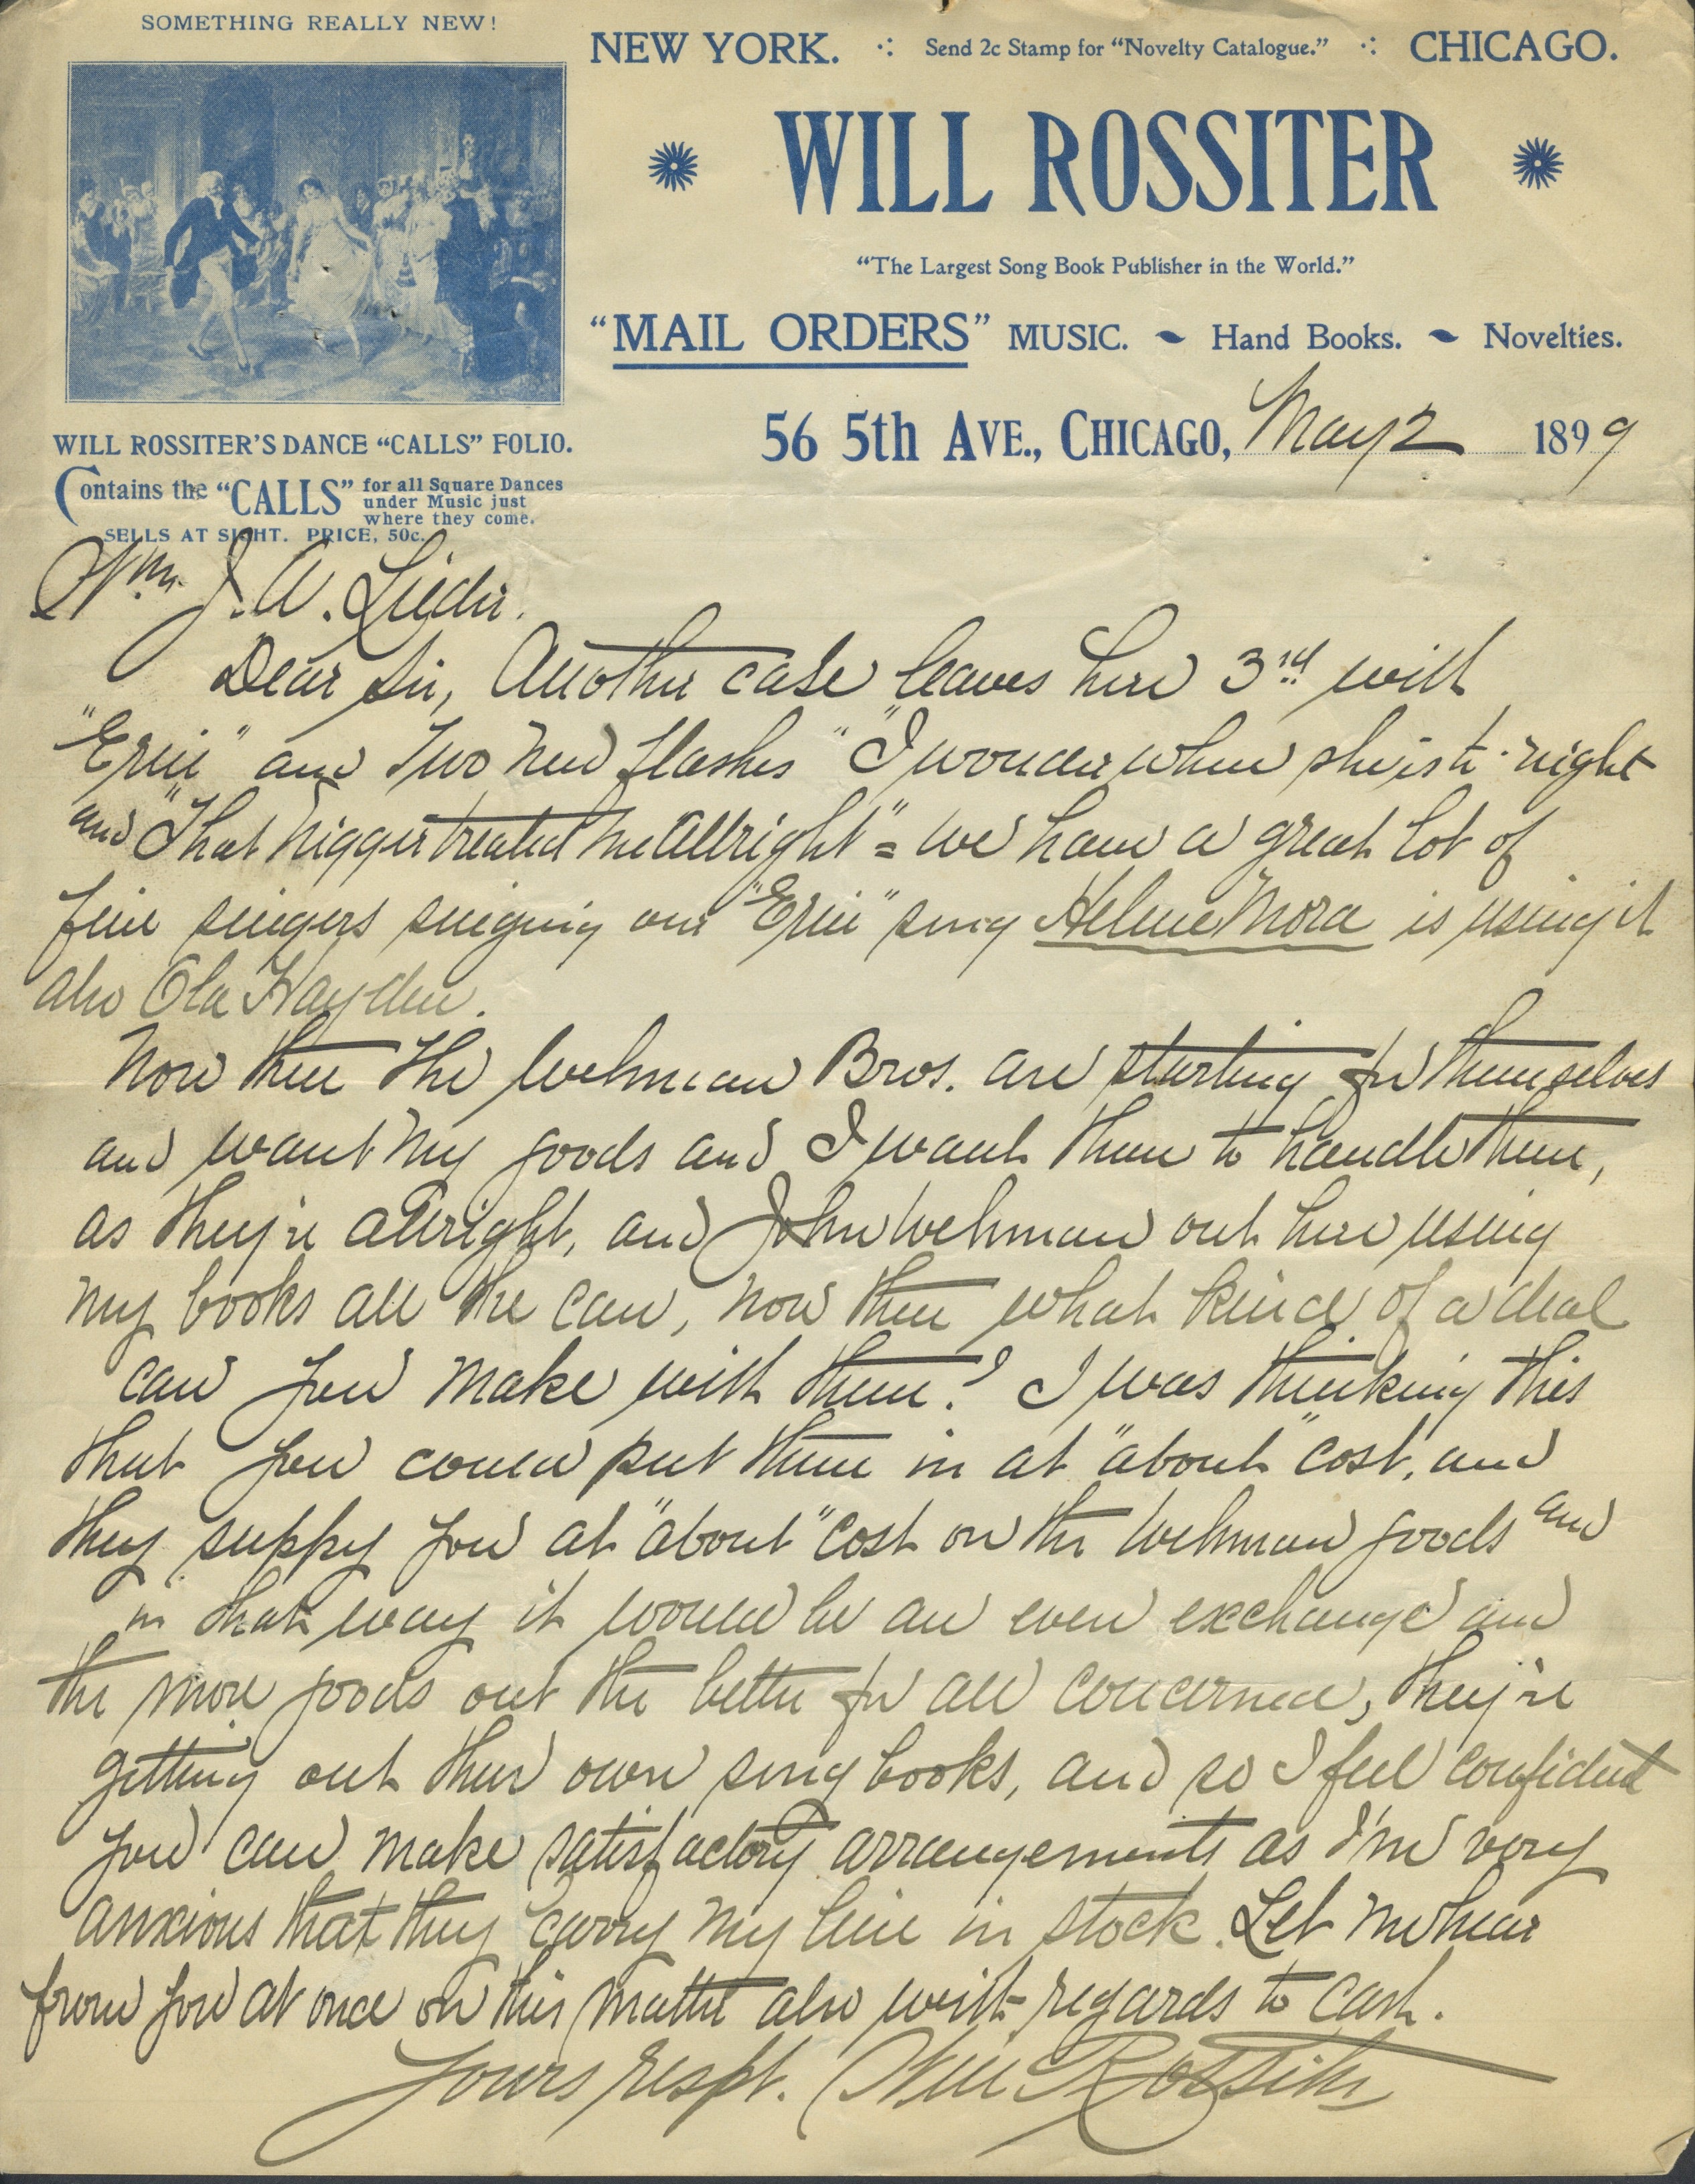 SOMETHING REALLY NEW!
NEW YORK. Send 2c Stamp for “Novelty Catalogue.” CHICAGO.
WILL ROSSITER
“The Largest Song Book Publisher in the World.”
“MAIL ORDERS” MUSIC. Hand Books. Novelties.
56 5th AVE., CHICAGO, May 2 1899
WILL ROSSITER'S DANCE “CALLS” FOLIO.
Contains the “CALLS” for all Square Dances
under Music just
where they come.
SELLS AT SIGHT. PRICE, 50c.
Wm. J. A.
Dear Sir, Another case leaves here 3rd with
"Erin" and Two New flashes "I wonder where she is to-night
and "That nigger treated me allright" = we have a great lot of
fine singers singing our "Erin" song Helene Mora is using it
also Ola Hayden.
Now then The Wehman Bros. are starting for themselves
and want my goods and I want them to handle them,
as they're allright, and John Wehman out here using
my books all he can, now then what kind of a deal
can you make with them? I was thinking this
that you could put them in at "about" cost, and
they supply you at "about" cost on the Wehman goods and
in that way it would be an even exchange and
the more goods out the better for all concerned, they're
getting out their own song books, and so I feel confident
you can make satisfactory arrangements as I'm very
anxious that they carry my line in stock. Let me hear
from you at once on this matter also with regards to cash.
Yours respt. Will Rossiter